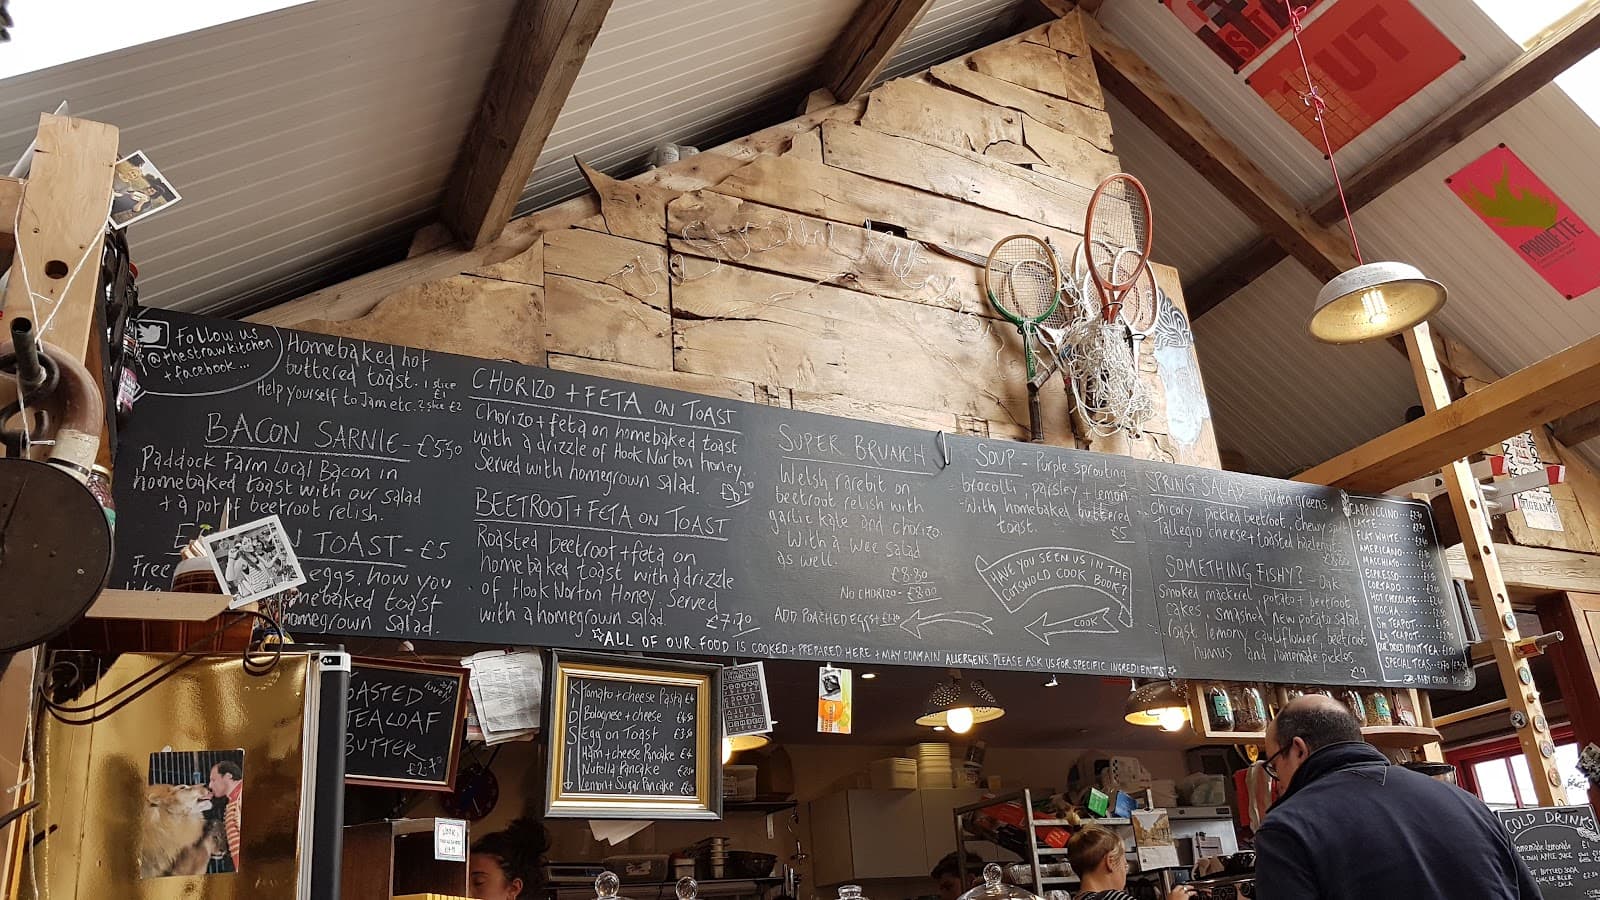 Follow us
@thestrawkitchen
+ facebook...
Homebaked hot
buttered toast. 1 slice
£1
Help yourself to Jam etc. 2 slice £2
BACON SARNIE - £5.50
Paddock Farm Local Bacon in
homebaked toast with our salad
+ a pot of beetroot relish.
TOAST - £5
Free eggs, how you
homebaked toast
homegrown Salad.
CHORIZO + FETA ON TOAST
Chorizo + feta on homebaked toast
with a drizzle of Hook Norton honey.
Served with homegrown salad.
BEETROOT + FETA ON TOAST
Roasted beetroot + feta on
homebaked toast with a drizzle
of Hook Norton Honey. Served
with a homegrown salad. £7.70
SUPER BRUNCH
Welsh rarebit on
beetroot relish with
garlic kale and chorizo.
With a wee salad
as well.
£8.80
NO CHORIZO - £8.00
ADD POACHED EGGS +
SOUP - Purple sprouting
brocolli, parsley + lemon
with homebaked buttered
toast. £5
HAVE YOU SEEN US IN THE
COTSWOLD COOK BOOK?
LOOK
SPRING SALAD - Garden greens,
chicory, pickled beetroot, chewy spelt,
Tallegio cheese + toasted
SOMETHING FISHY? - Oak
Smoked mackerel, potato + beetroot
cakes, smashed new potato salad,
roast lemony cauliflower, beetroot
humus and homemade pickles.
£9
CAPPUCCINO
LATTE
FLAT WHITE
AMERICANO
MACCHIATO
ESPRESSO
CORTADO
HOT CHOCOLATE
MOCHA
SM TEAPOT
LG TEAPOT
MINT TEA
SPECIAL TEAS
BABY CHINO
☆ALL OF OUR FOOD IS COOKED + PREPARED HERE + MAY CONTAIN ALLERGENS. PLEASE ASK US FOR SPECIFIC INGREDIENTS☆
TEALOAF
BUTTER
KIDS
Tomato + cheese Pasta £4
Bolognese + cheese £4.50
Egg on Toast £3.50
Ham + cheese Pancake £4
Nutella Pancake
Lemon + Sugar Pancake
PIROUETTE
COLD DRINKS
Homemade lemonade £1
APPLE JUICE
GINGER BEER
A+